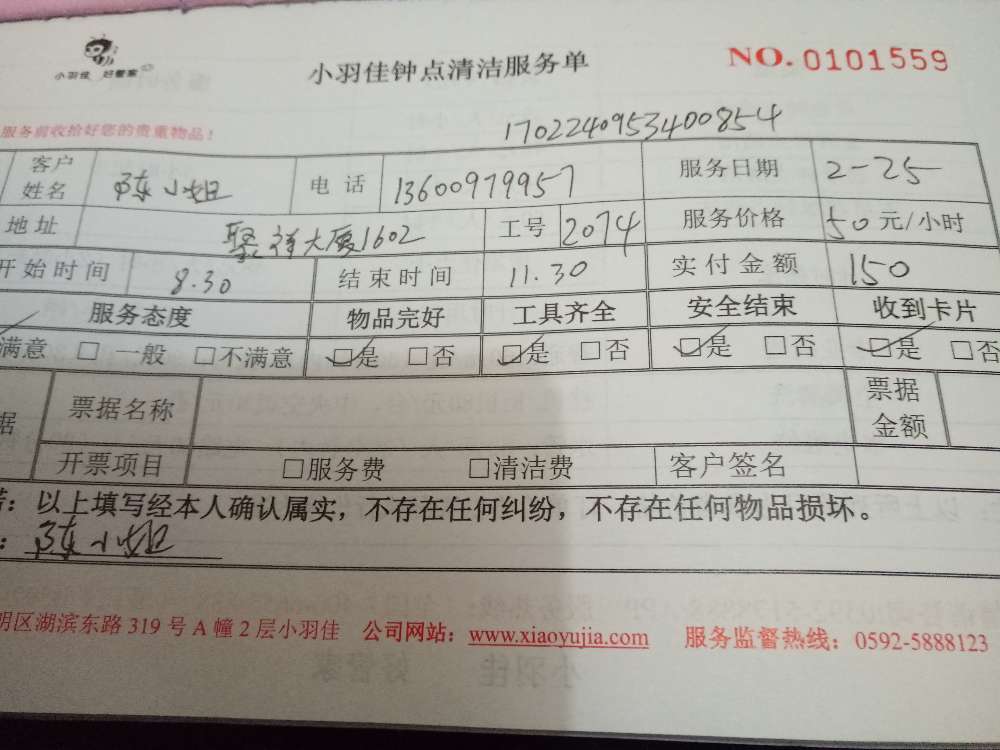 小羽佳 好管家
小羽佳钟点清洁服务单
NO.0101559
服务前收拾好您的贵重物品！
1702240953400854
客户姓名 陈小姐 电话 13600979957 服务日期 2-25
地址 聚祥大厦1602 工号 2074 服务价格 50元/小时
开始时间 8.30 结束时间 11.30 实付金额 150
服务态度 物品完好 工具齐全 安全结束 收到卡片
满意 □ 一般 □不满意 □是 □否 □是 □否 □是 □否 □是 □否
据 票据名称 票据金额
开票项目 □服务费 □清洁费 客户签名
：以上填写经本人确认属实，不存在任何纠纷，不存在任何物品损坏。
：陈小姐
明区湖滨东路 319 号 A 幢 2 层小羽佳 公司网站：www.xiaoyujia.com 服务监督热线：0592-5888123